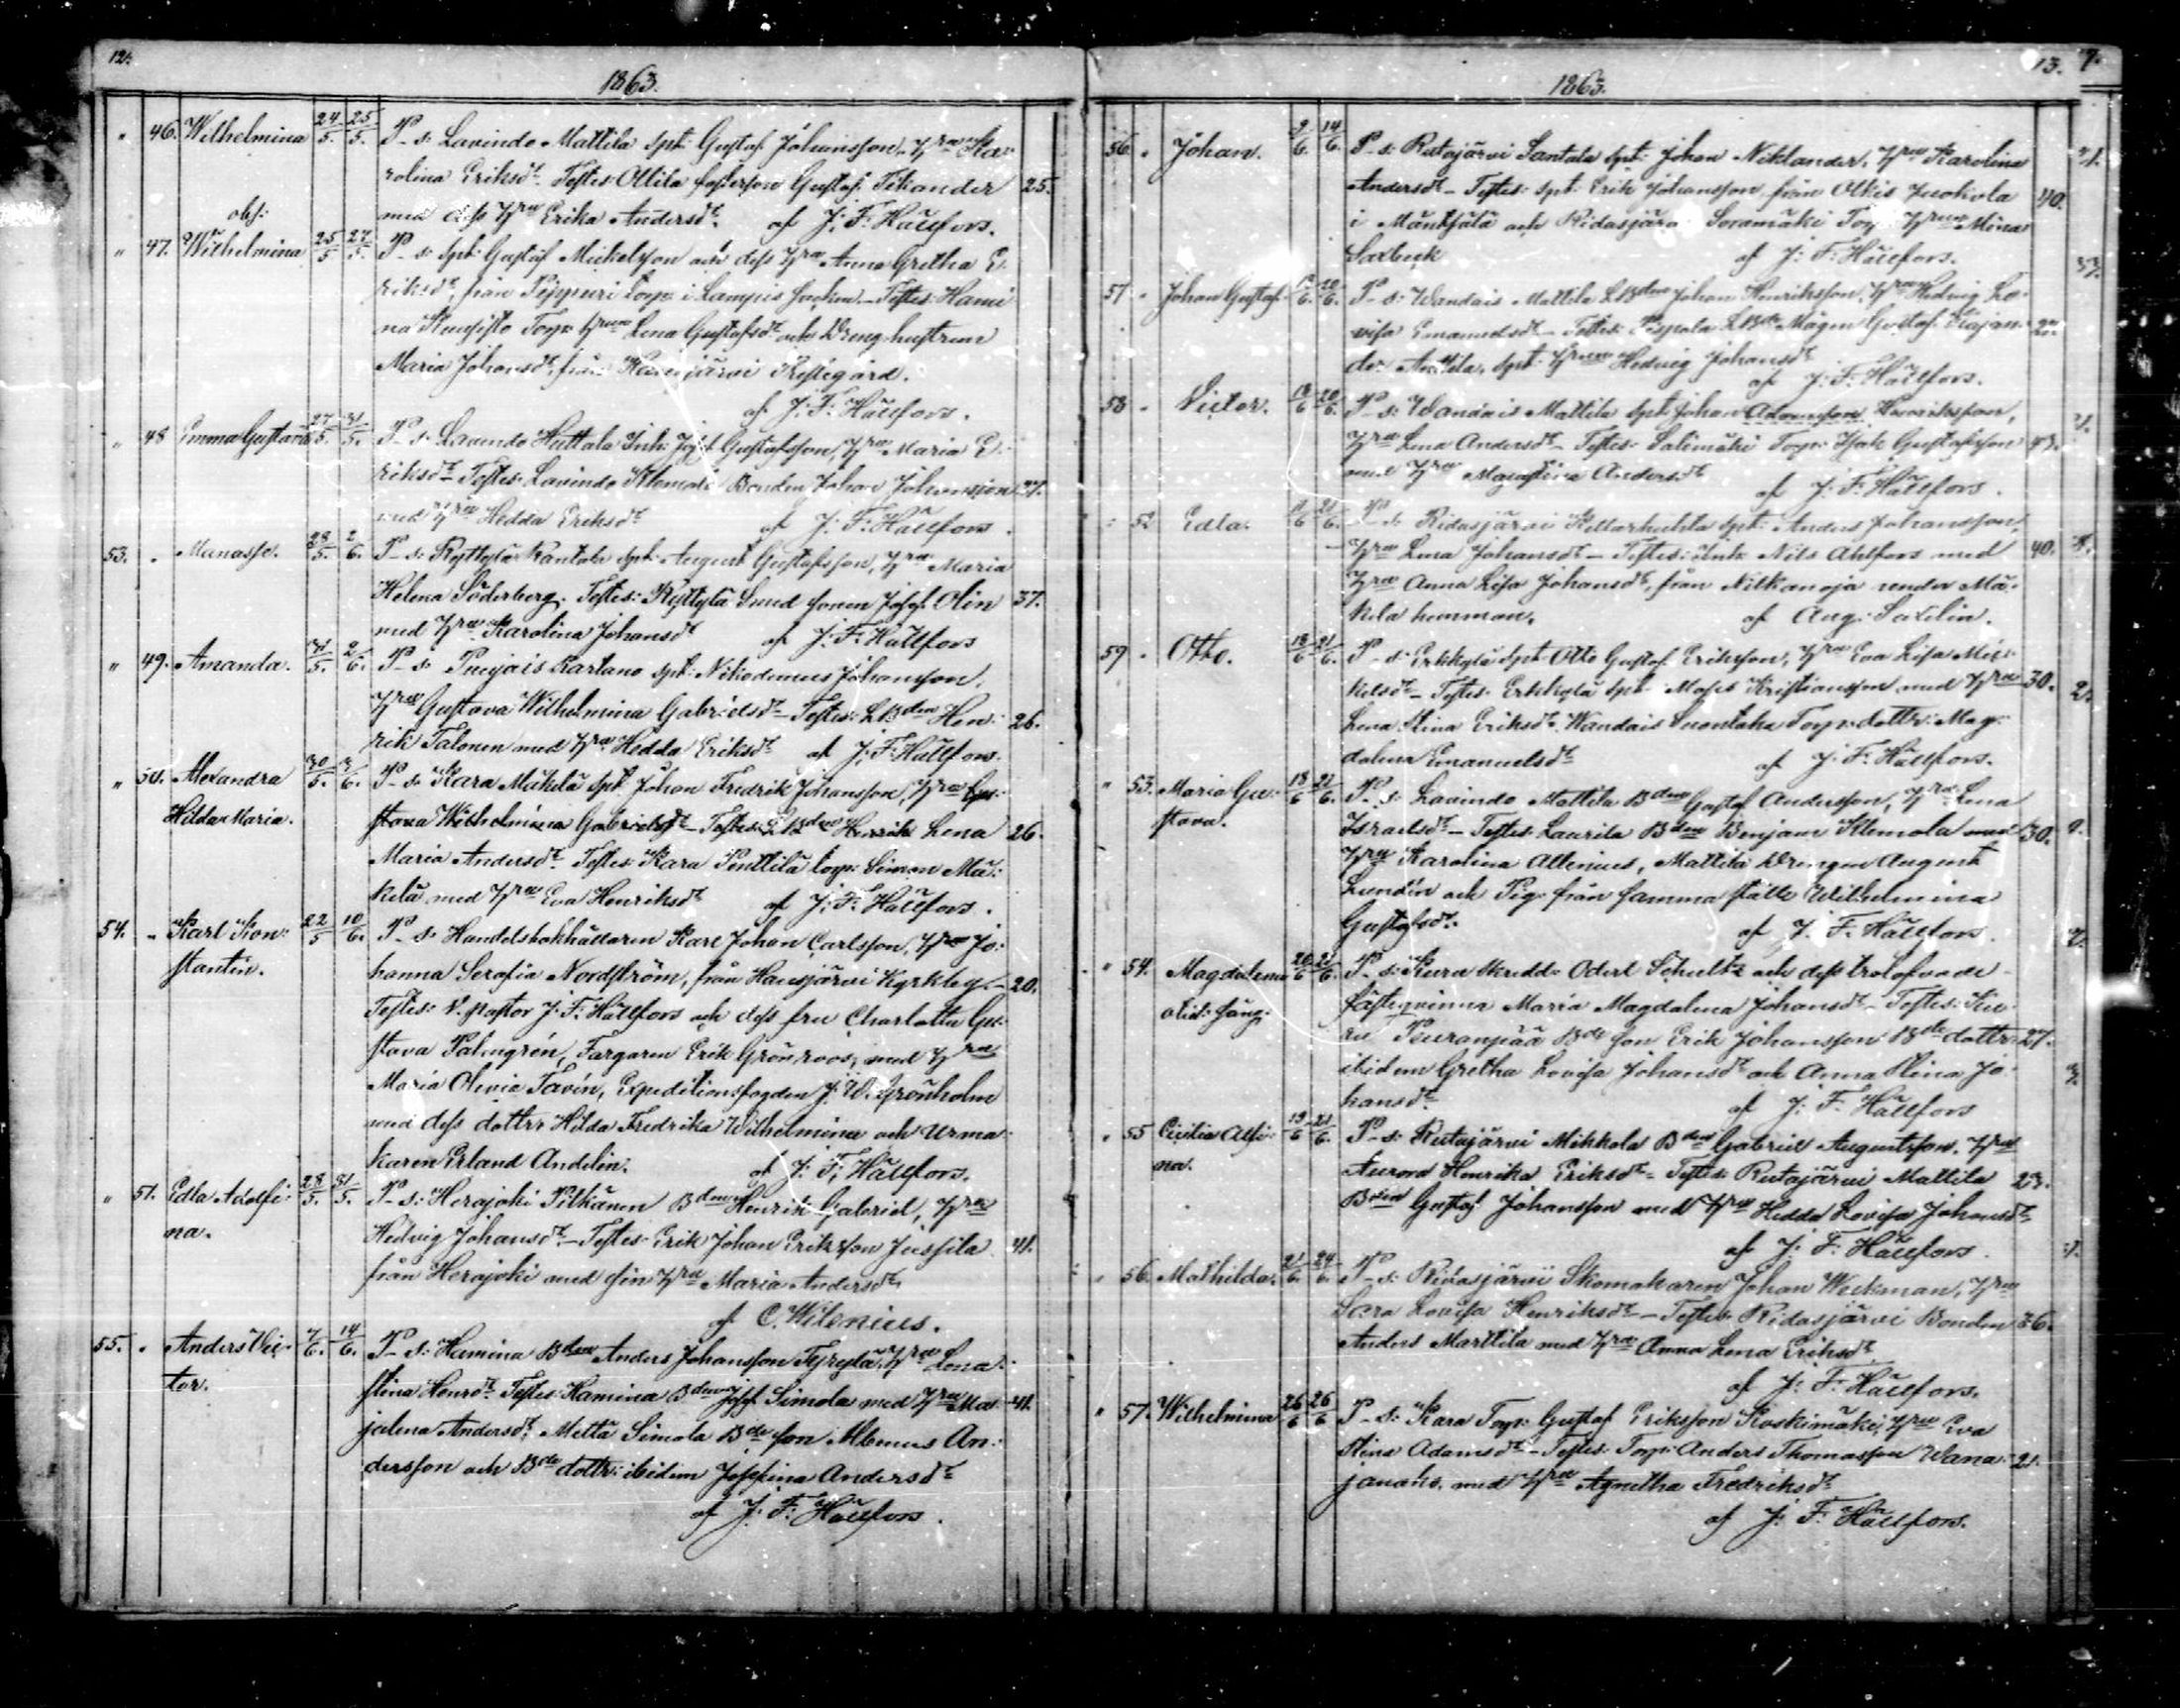 12.
1863.
" 46. Wilhelmina 24/5. 25/5. P-s: Lavindo Mattila Spt: Gustaf Johansson, Hru Ka-
rolina Eriksdr. Testes: Ollila fosterson Gustaf Tikander 25.
med dess Hru Erika Andersdr. af J: F: Hällfors.
obs:
" 47. Wilhelmina 25/5 27/5. P-s: Spt: Gustaf Mickelsson och dess Hru Anna Gretha E-
riksdr, från Torp: i Lampis Socken. – Testes: Hami
na Torp: hrun Lena Gustafsdr och Dreng hustrun
Maria Johansdr, från Hausjärvi Prestgård.
af J: F: Hällfors.
" 48 Emma Gustava 27/5. 31/5. P-s: Lavindo Huttala Inh: Josef Gustafsson, Hru Maria E-
riksdr Testes: Lavindo Klemola Bonden Johan Johansson 27.
med Hru Hedda Eriksdr af J: F: Hällfors.
53. " Manasse. 28/5. 2/6. P-s: Ryttylä Rantala Spt: August Gustafsson, Hru Maria
Helena Söderberg. Testes: Ryttylä Smed sonen Josef Olin 37.
med Hru Karolina Johansdr af J: F: Hällfors
" 49. Amanda. 31/5. 2/6. P-s: Pujais Kartano Spt: Nikodemus Johansson,
Hru Gustava Wilhelmina Gabrielsdr – Testes: LBden Hen- 26.
rik Talonen med Hru Hedda Eriksdr af J: F: Hällfors.
" 50. Alexandra 30/5. 3/6. P-s: Kara Mäkelä Spt: Johan Fredrik Johansson, Hru Gu-
Hilda Maria. stava Wilhelmina Gabrielsdr – Testes: LBden Henrik Lena 26.
Maria Andersdr. Testes: Kara Penttilä torp: Simon Mä-
kelä med Hru Eva Henriksdr af J: F: Hällfors.
54. " Karl Kon- 22/5 10/6. P-s: Handelsbokhållaren Karl Johan Carlsson, Hru Jo-
stantin. hanna Serafia Nordström, från Hausjärvi Kyrkby. – 20.
Testes: V. pastor J: F: Hällfors och dess fru Charlotta Gu-
stava Palmgrén, Färgaren Erik Grönroos, med Hru
Maria Olivia Tavén, Expeditionsfogden J: W. Grönholm
med dess dottr: Hilda Fredrika Wilhelmina och Urma-
karen Erland Andelin. af J: F: Hällfors.
" 51. Edla Adolfi- 28/5. 31/5. P-s: Herajoki Pitkänen Bden Henrik Gabriel, Hru
na. Hedvig Johansdr. – Testes: Erik Johan Eriksson Jussila 41.
från Herajoki med sin Hru Maria Andersdr.
af C. Wilenius.
55. " Anders Vic- 7/6. 14/6. P-s: Hamina Bden Anders Johansson, Hru Lena
tor. Stina Henrdr. Testes: Hamina Bden Josef Simola med Hru Ma- 41.
jalena Andersdr, Mettä Simola Bde son Albinus An-
dersson och Bde dottr: ibidem Josefina Andersdr
af J: F: Hällfors.
13. 7.
1863.
56. " Johan. 9/6. 14/6. P-s: Rutajärvi Santala Spt: Johan Niklander, Hru Karolina
Andersdr – Testes: Spt: Erik Johansson från Olkis Juohola 40.
i Mäntsälä och Ridasjärvi Soramäki Torp: Hrun Mina
Saxbeck af J: F: Hällfors.
57 " Johan Gustaf. 12/6. 20/6. P-s: Wandais Mattila LBden Johan Henriksson, Hru Hedvig Lo-
visa Emanuelsdr – Testes: LBde Mågen Gustaf Kajan- 22.
der Anttila, Spt: Hrun Hedvig Johansdr
af J: F: Hällfors.
58 " Victor. 18/6 20/6. P-s: Wandais Mattila Spt: Johan Adamsson Henriksson,
Hru Lena Andersdr – Testes: Salimäki Torp: Isak Gustafsson 43.
med Hru Majastina Andersdr
af J: F: Hällfors.
" 52 Edla. 11/6 21/6. P-s: Ridasjärvi Kellarhuhta Spt: Anders Johansson,
Hru Lena Johansdr – Testes: Inh: Nils Ahlfors med 40.
Hru Anna Lisa Johansdr, från Nilkanoja under Mä-
kela hemman. af Aug: Saxelin.
59 " Otto. 18/6 21/6. P-s: Erkkylä Spt: Otto Gustaf Eriksson, Hru Eva Lisa Mic-
kelsdr – Testes: Erkkylä Spt: Moses Kristiansson med Hru 30.
Lena Stina Eriksdr. Wandais Suontaka Torp: dottr: Mag-
dalena Emanuelsdr af J: F: Hällfors.
" 53. Maria Gu- 18/6 21/6. P-s: Lavindo Mattila Bden Gustaf Andersson, Hru Lena
stava. Israelsdr – Testes: Laurila Bden Benjam: Klemola med 30.
Hru Karolina Allenius, Mattila Drengen August
Lundén och Pig: från samma ställe Wilhelmina
Gustafsdr. af J: F: Hällfors.
" 54. Magdalena 20/6 21/6. P-s: Kuru Skredd: Oderl Schultz och dess trolofvade
olid: säng: fästeqvinna Maria Magdalena Johansdr – Testes: Ku-
ru Kuranpää Bde son Erik Johansson Bde dottr: 27.
ibidem Gretha Lovisa Johansdr och Anna Stina Jo-
hansdr. af J: F: Hällfors
" 55 Cecilia Alfi- 19/6 21/6. P-s: Rutajärvi Mikkola Bden Gabriel Augustsson, Hru
na. Aurora Henrika Eriksdr – Testes: Rutajärvi Mattila 23.
Bden Gustaf Johansson med Hru Hedda Lovisa Johansdr
af J: F: Hällfors.
" 56. Mathilda. 21/6. 24/6. P-s: Ridasjärvi Skomakaren Johan Weckman, Hru
Sara Lovisa Henriksdr – Testes: Ridasjärvi Bonden 26.
Anders Marttila med Hru Anna Lena Eriksdr
af J: F: Hällfors.
" 57. Wilhelmina 26/6 26/6 P-s: Kara Torp: Gustaf Eriksson Koskimäki, Hru Eva
Stina Adamsdr – Testes: Torp: Anders Thomasson Wana- 21.
janaho, med Hru Agnetha Fredriksdr
af J: F: Hällfors.